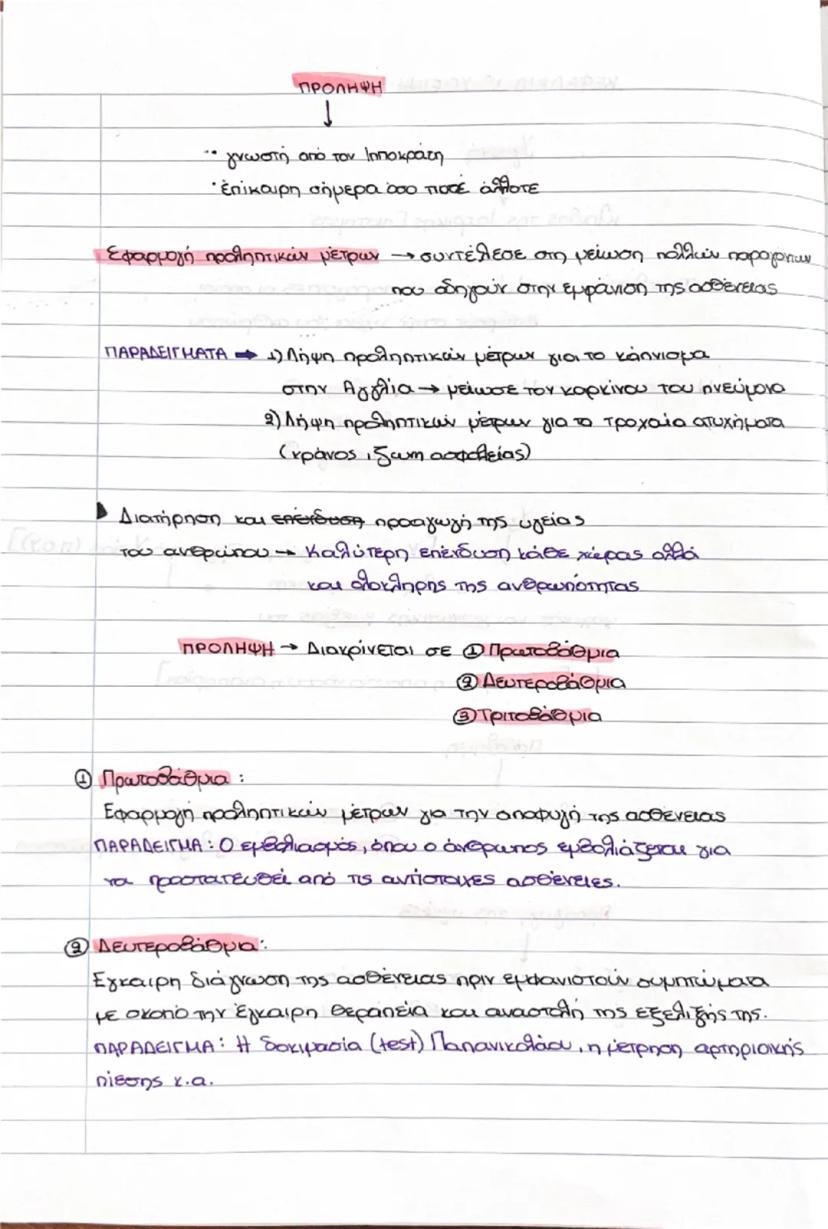 ΠΡΟΛΗΨΗ
↓
·· γνωστή από τον Ιπποκράτη
· επίκαιρη σήμερα όσο ποτέ άλλοτε
Εφαρμογή προληπτικών μέτρων → συντέλεσε στη μείωση πολλών παραγόντων
που οδηγούν στην εμφάνιση της ασθένειας
ΠΑΡΑΔΕΙΓΜΑΤΑ → 1) Λήψη προληπτικών μέτρων για το κάπνισμα
στην Αγγλία → μείωσε τον καρκίνου του πνεύμονα
2) Λήψη προληπτικών μέτρων για τα τροχαία ατυχήματα
(κράνος, ζωνη ασφαλείας)
Διατήρηση και επένδυση προαγωγή της υγείας
του ανθρώπου → Καλύτερη επένδυση κάθε χώρας αλλά
και ολοκληρης της ανθρωπότητας
ΠΡΟΛΗΨΗ → Διακρίνεται σε ① Πρωτοβάθμια
② Δευτεροβάθμια
③ Τριτοβάθμια
① Πρωτοβάθμια :
Εφαρμογή προληπτικών μέτρων για την αποφυγή της ασθένειας
ΠΑΡΑΔΕΙΓΜΑ : Ο εμβολιασμός, όπου ο άνθρωπος εμβολιάζεται για
να προστατευθεί από τις αντίστοιχες ασθένειες.
② Δευτεροβάθμια :
Εγκαιρη διάγνωση της ασθένειας πριν εμφανιστούν συμπτώματα
με σκοπό την έγκαιρη θεραπεία και αναστολή της εξελιξής της.
ΠΑΡΑΔΕΙΓΜΑ : Η δοκιμασία (test) Παπανικολάου, η μέτρηση αρτηριακής
πίεσης κ.α.